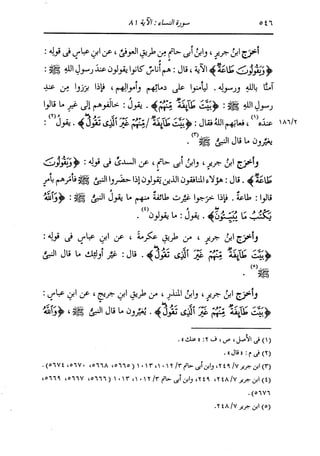 ٥٤٦ سورة النساء : الآية ٨١
أخرج ابنُ جريرٍ ، وابنُ أبى حاتمٍ من طريقِ العوفىِّ ، عن ابنِ عباسٍ فى قولِه :
﴿وَيَقُولُونَ طَاعَةٌ﴾ الآية ، قال : هم أُناسٌ كانوا يقولون عندَ رسولِ اللهِ ﷺ :
آمنَّا باللهِ ورسولِه . ليأمنوا على دمائِهم وأموالِهم ، فإذا برَزوا من عندِ
رسولِ اللهِ ﷺ : ﴿بَيَّتَ طَآئِفَةٌ مِّنْهُمْ﴾ . يقولُ : خالفوهم إلى غيرِ ما قالوا
١٨٦/٢ عندَه(١) ، فعابَهم اللهُ فقال : ﴿بَيَّتَ طَآئِفَةٌ مِّنْهُمْ غَيْرَ ٱلَّذِى تَقُولُ﴾ . يقولُ(٢) :
يغيِّرون ما قال النبىُّ ﷺ(٣) .
وأخرج ابنُ جريرٍ ، وابنُ أبى حاتمٍ ، عن السدىِّ فى قولِه : ﴿وَيَقُولُونَ
طَاعَةٌ﴾ . قال : هؤلاء المنافقون الذين يقولون إذا حضَروا النبىَّ ﷺ فأمَرهم بأمرٍ
قالوا : طاعةٌ . فإذا خرَجوا غيَّرت طائفةٌ منهم ما يقولُ النبىُّ ﷺ : ﴿وَٱللَّهُ
يَكْتُبُ مَا يُبَيِّتُونَ﴾ . يقولُ : ما يقولون(٤) .
وأخرج ابنُ جريرٍ ، من طريقِ عكرمةَ ، عن ابنِ عباسٍ فى قولِه :
﴿بَيَّتَ طَآئِفَةٌ مِّنْهُمْ غَيْرَ ٱلَّذِى تَقُولُ﴾ . قال : غيَّر أولئك ما قال النبىُّ
ﷺ(٥) .
وأخرج ابنُ جريرٍ ، وابنُ المنذرِ ، من طريقِ ابنِ جريجٍ ، عن ابنِ عباسٍ :
﴿بَيَّتَ طَآئِفَةٌ مِّنْهُمْ غَيْرَ ٱلَّذِى تَقُولُ﴾ . يُغيِّرون ما قال النبىُّ ، ﴿وَٱللَّهُ
(١) فى الأصل ، ص ، ف ٢ : « عنك » .
(٢) فى م : « قال » .
(٣) ابن جرير ٧/ ٢٤٩، وابن أبى حاتم ٣/ ١٠١٢، ١٠١٣ (٥٦٦٥، ٥٦٦٨، ٥٦٧٠، ٥٦٧٤) .
(٤) ابن جرير ٧/ ٢٤٨، ٢٤٩، وابن أبى حاتم ٣/ ١٠١٢، ١٠١٣ (٥٦٦٦، ٥٦٦٧، ٥٦٦٩،
٥٦٧٦) .
(٥) ابن جرير ٧/ ٢٤٨.